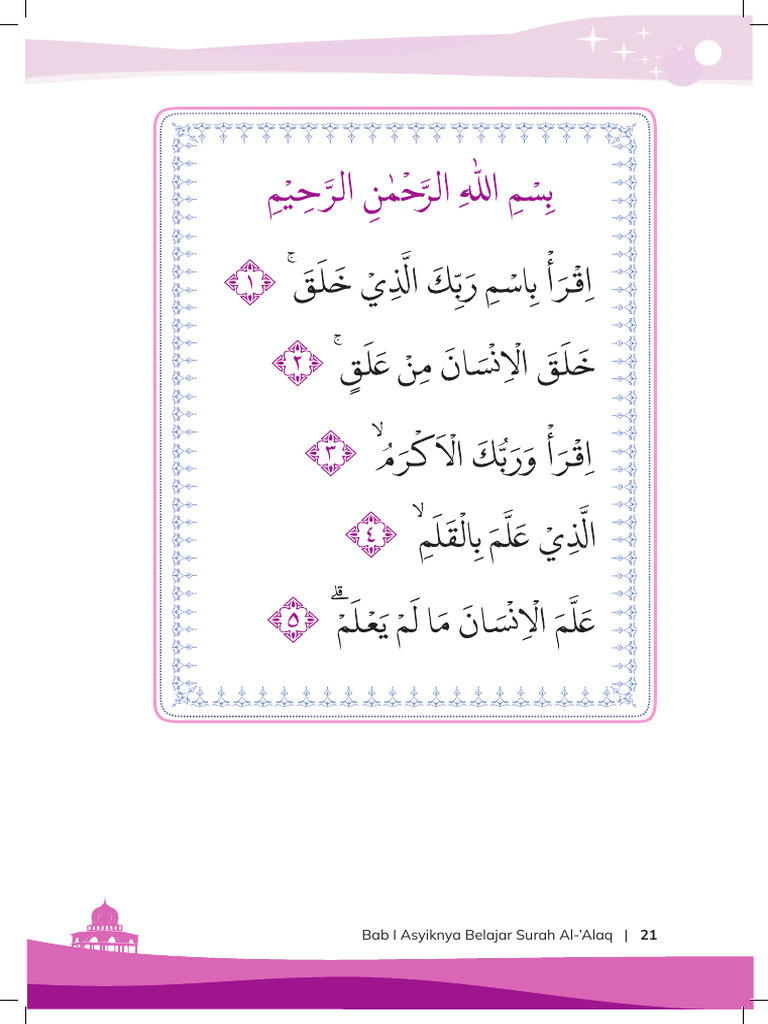 بِسْمِ اللّٰهِ الرَّحْمٰنِ الرَّحِيْمِ
اِقْرَأْ بِاسْمِ رَبِّكَ الَّذِيْ خَلَقَۚ ١
خَلَقَ الْاِنْسَانَ مِنْ عَلَقٍۚ ٢
اِقْرَأْ وَرَبُّكَ الْاَكْرَمُۙ ٣
الَّذِيْ عَلَّمَ بِالْقَلَمِۙ ٤
عَلَّمَ الْاِنْسَانَ مَا لَمْ يَعْلَمْۗ ٥
Bab I Asyiknya Belajar Surah Al-'Alaq | 21